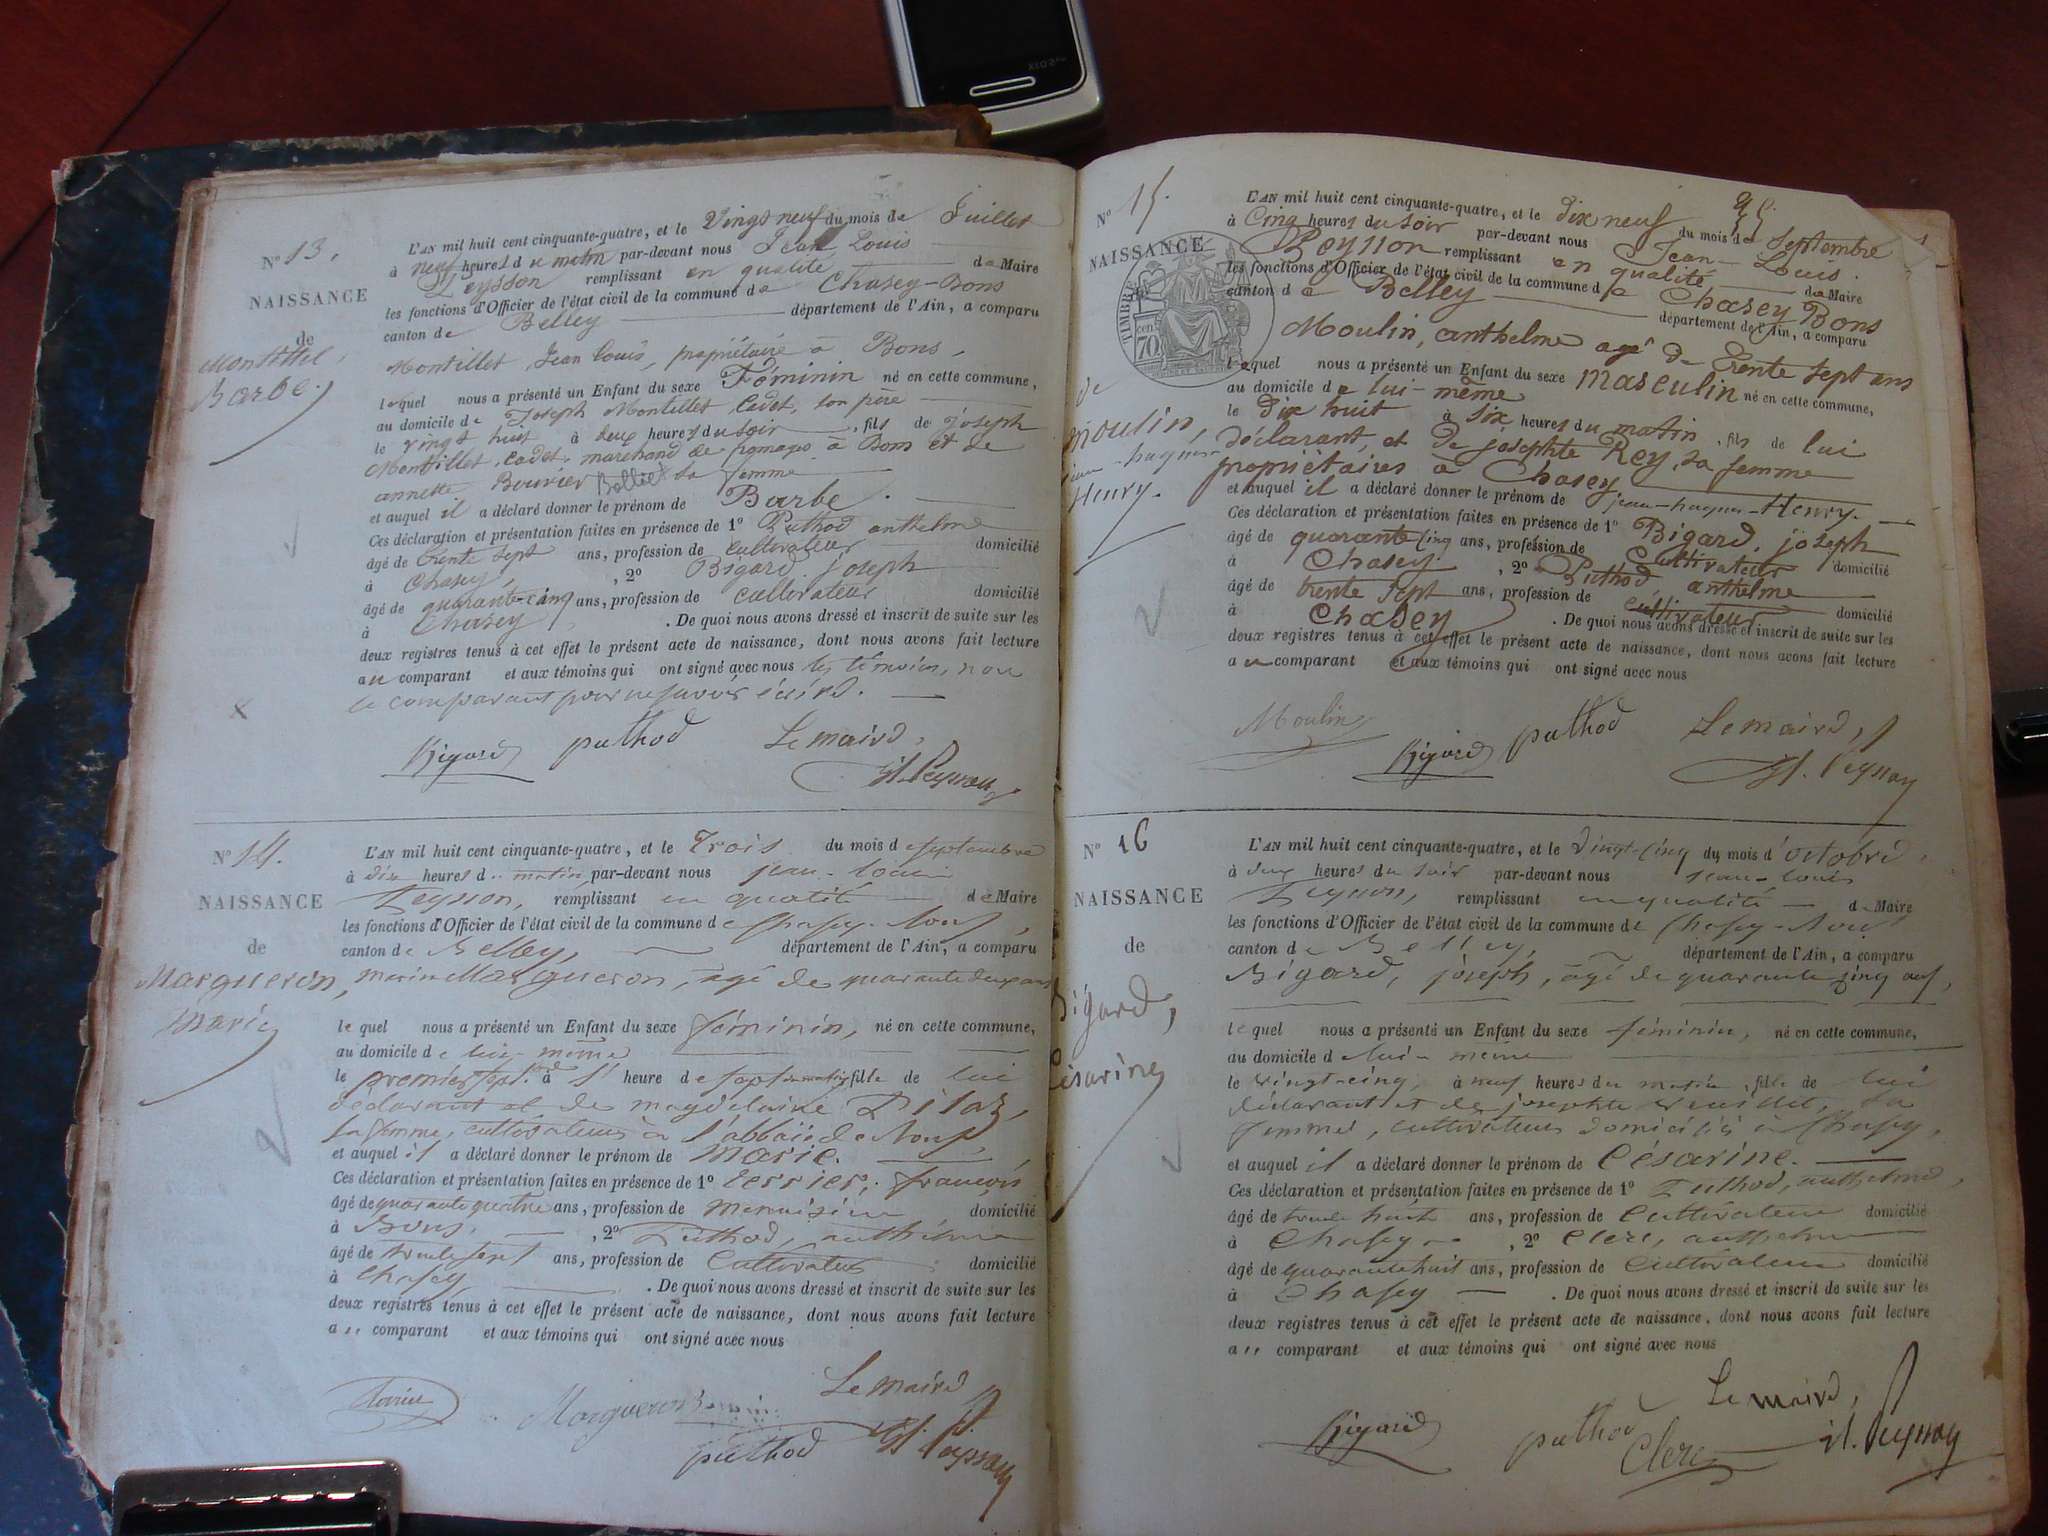 N° 13.
NAISSANCE
de
Montillet,
Barbe.
L'AN mil huit cent cinquante-quatre, et le Vingt neuf du mois de Juillet
à neuf heures du matin par-devant nous Jean Louis
Peysson remplissant en qualité de Maire
les fonctions d'Officier de l'état civil de la commune de Chasey-Bons
canton de Belley département de l'Ain, a comparu
Montillet, Jean Louis, propriétaire à Bons,
lequel nous a présenté un Enfant du sexe Féminin né en cette commune,
au domicile de Joseph Montillet Cadet, son père
le vingt huit à deux heures du soir, fils de Joseph
Montillet, Cadet, marchand de fromages à Bons et de
annette Bouvier Bolliet sa femme
et auquel il a déclaré donner le prénom de Barbe.
Ces déclaration et présentation faites en présence de 1° Puthod anthelme
âgé de trente sept ans, profession de cultivateur domicilié
à Chasey, 2° Bigard joseph
âgé de quarante-cinq ans, profession de cultivateur domicilié
à Chasey. De quoi nous avons dressé et inscrit de suite sur les
deux registres tenus à cet effet le présent acte de naissance, dont nous avons fait lecture
au comparant et aux témoins qui ont signé avec nous les témoins, non
le comparant pour ne savoir écrire.
Bigard puthod Le maire,
jl. Peysson
N° 14.
NAISSANCE
de
Margueron,
Marie
L'AN mil huit cent cinquante-quatre, et le Trois du mois de septembre
à dix heures du matin par-devant nous jean-louis
Peysson, remplissant en qualité de Maire
les fonctions d'Officier de l'état civil de la commune de Chasey-Bons,
canton de Belley, département de l'Ain, a comparu
Margueron, âgé de quarante deux ans
lequel nous a présenté un Enfant du sexe féminin, né en cette commune,
au domicile de lui-même
le premier sept.bre à heure de fille de lui
déclarant et de magdelaine Pilaz,
sa femme, cultivateurs à l'abbaïe de Bons,
et auquel il a déclaré donner le prénom de Marie.
Ces déclaration et présentation faites en présence de 1° Terrier, françois
âgé de quarante quatre ans, profession de menuisier domicilié
à Bons, 2° Puthod, anthelme
âgé de trente sept ans, profession de Cultivateur domicilié
à Chasey. De quoi nous avons dressé et inscrit de suite sur les
deux registres tenus à cet effet le présent acte de naissance, dont nous avons fait lecture
a,, comparant et aux témoins qui ont signé avec nous
Le maire
Margueron
puthod jl. Peysson
N° 15.
NAISSANCE
TIMBRE
70 cen.
de
Moulin,
jean-jaques
Henry.
L'AN mil huit cent cinquante-quatre, et le dix neuf du mois de Septembre
à Cinq heures du soir par-devant nous Jean-Louis
Peysson remplissant en qualité de Maire
les fonctions d'Officier de l'état civil de la commune de Chasey Bons
canton de Belley département de l'Ain, a comparu
Moulin, anthelme agé de Trente sept ans
lequel nous a présenté un Enfant du sexe Masculin né en cette commune,
au domicile de lui-même
le dix huit à six heures du matin, fils de lui
déclarant, et de josephte Rey, sa femme
propriétaires à Chasey
et auquel il a déclaré donner le prénom de jean-jaques-Henry.
Ces déclaration et présentation faites en présence de 1° Bigard, joseph
âgé de quarante cinq ans, profession de Cultivateur domicilié
à Chasey, 2° Puthod anthelme
âgé de trente sept ans, profession de cultivateur domicilié
à Chasey. De quoi nous avons dressé et inscrit de suite sur les
deux registres tenus à cet effet le présent acte de naissance, dont nous avons fait lecture
au comparant et aux témoins qui ont signé avec nous
Moulin Bigard puthod Le maire,
jl. Peysson
N° 16
NAISSANCE
de
Bigard,
Césarine
L'AN mil huit cent cinquante-quatre, et le Vingt-cinq du mois d'octobre,
à deux heures du soir par-devant nous jean-louis
Peysson, remplissant en qualité de Maire
les fonctions d'Officier de l'état civil de la commune de Chasey-Bons
canton de Belley, département de l'Ain, a comparu
Bigard, joseph, âgé de quarante cinq ans,
lequel nous a présenté un Enfant du sexe féminin, né en cette commune,
au domicile de lui-même
le vingt-cinq, à neuf heures du matin, fille de lui
déclarant et de josephte sa
femme, cultivateurs domiciliés à Chasey,
et auquel il a déclaré donner le prénom de Césarine.
Ces déclaration et présentation faites en présence de 1° Puthod, anthelme,
âgé de trente huit ans, profession de Cultivateur domicilié
à Chasey, 2° Clerc, anthelme
âgé de quarante huit ans, profession de Cultivateur domicilié
à Chasey. De quoi nous avons dressé et inscrit de suite sur les
deux registres tenus à cet effet le présent acte de naissance, dont nous avons fait lecture
a,, comparant et aux témoins qui ont signé avec nous
Le maire,
Bigard puthod Clerc jl. Peysson